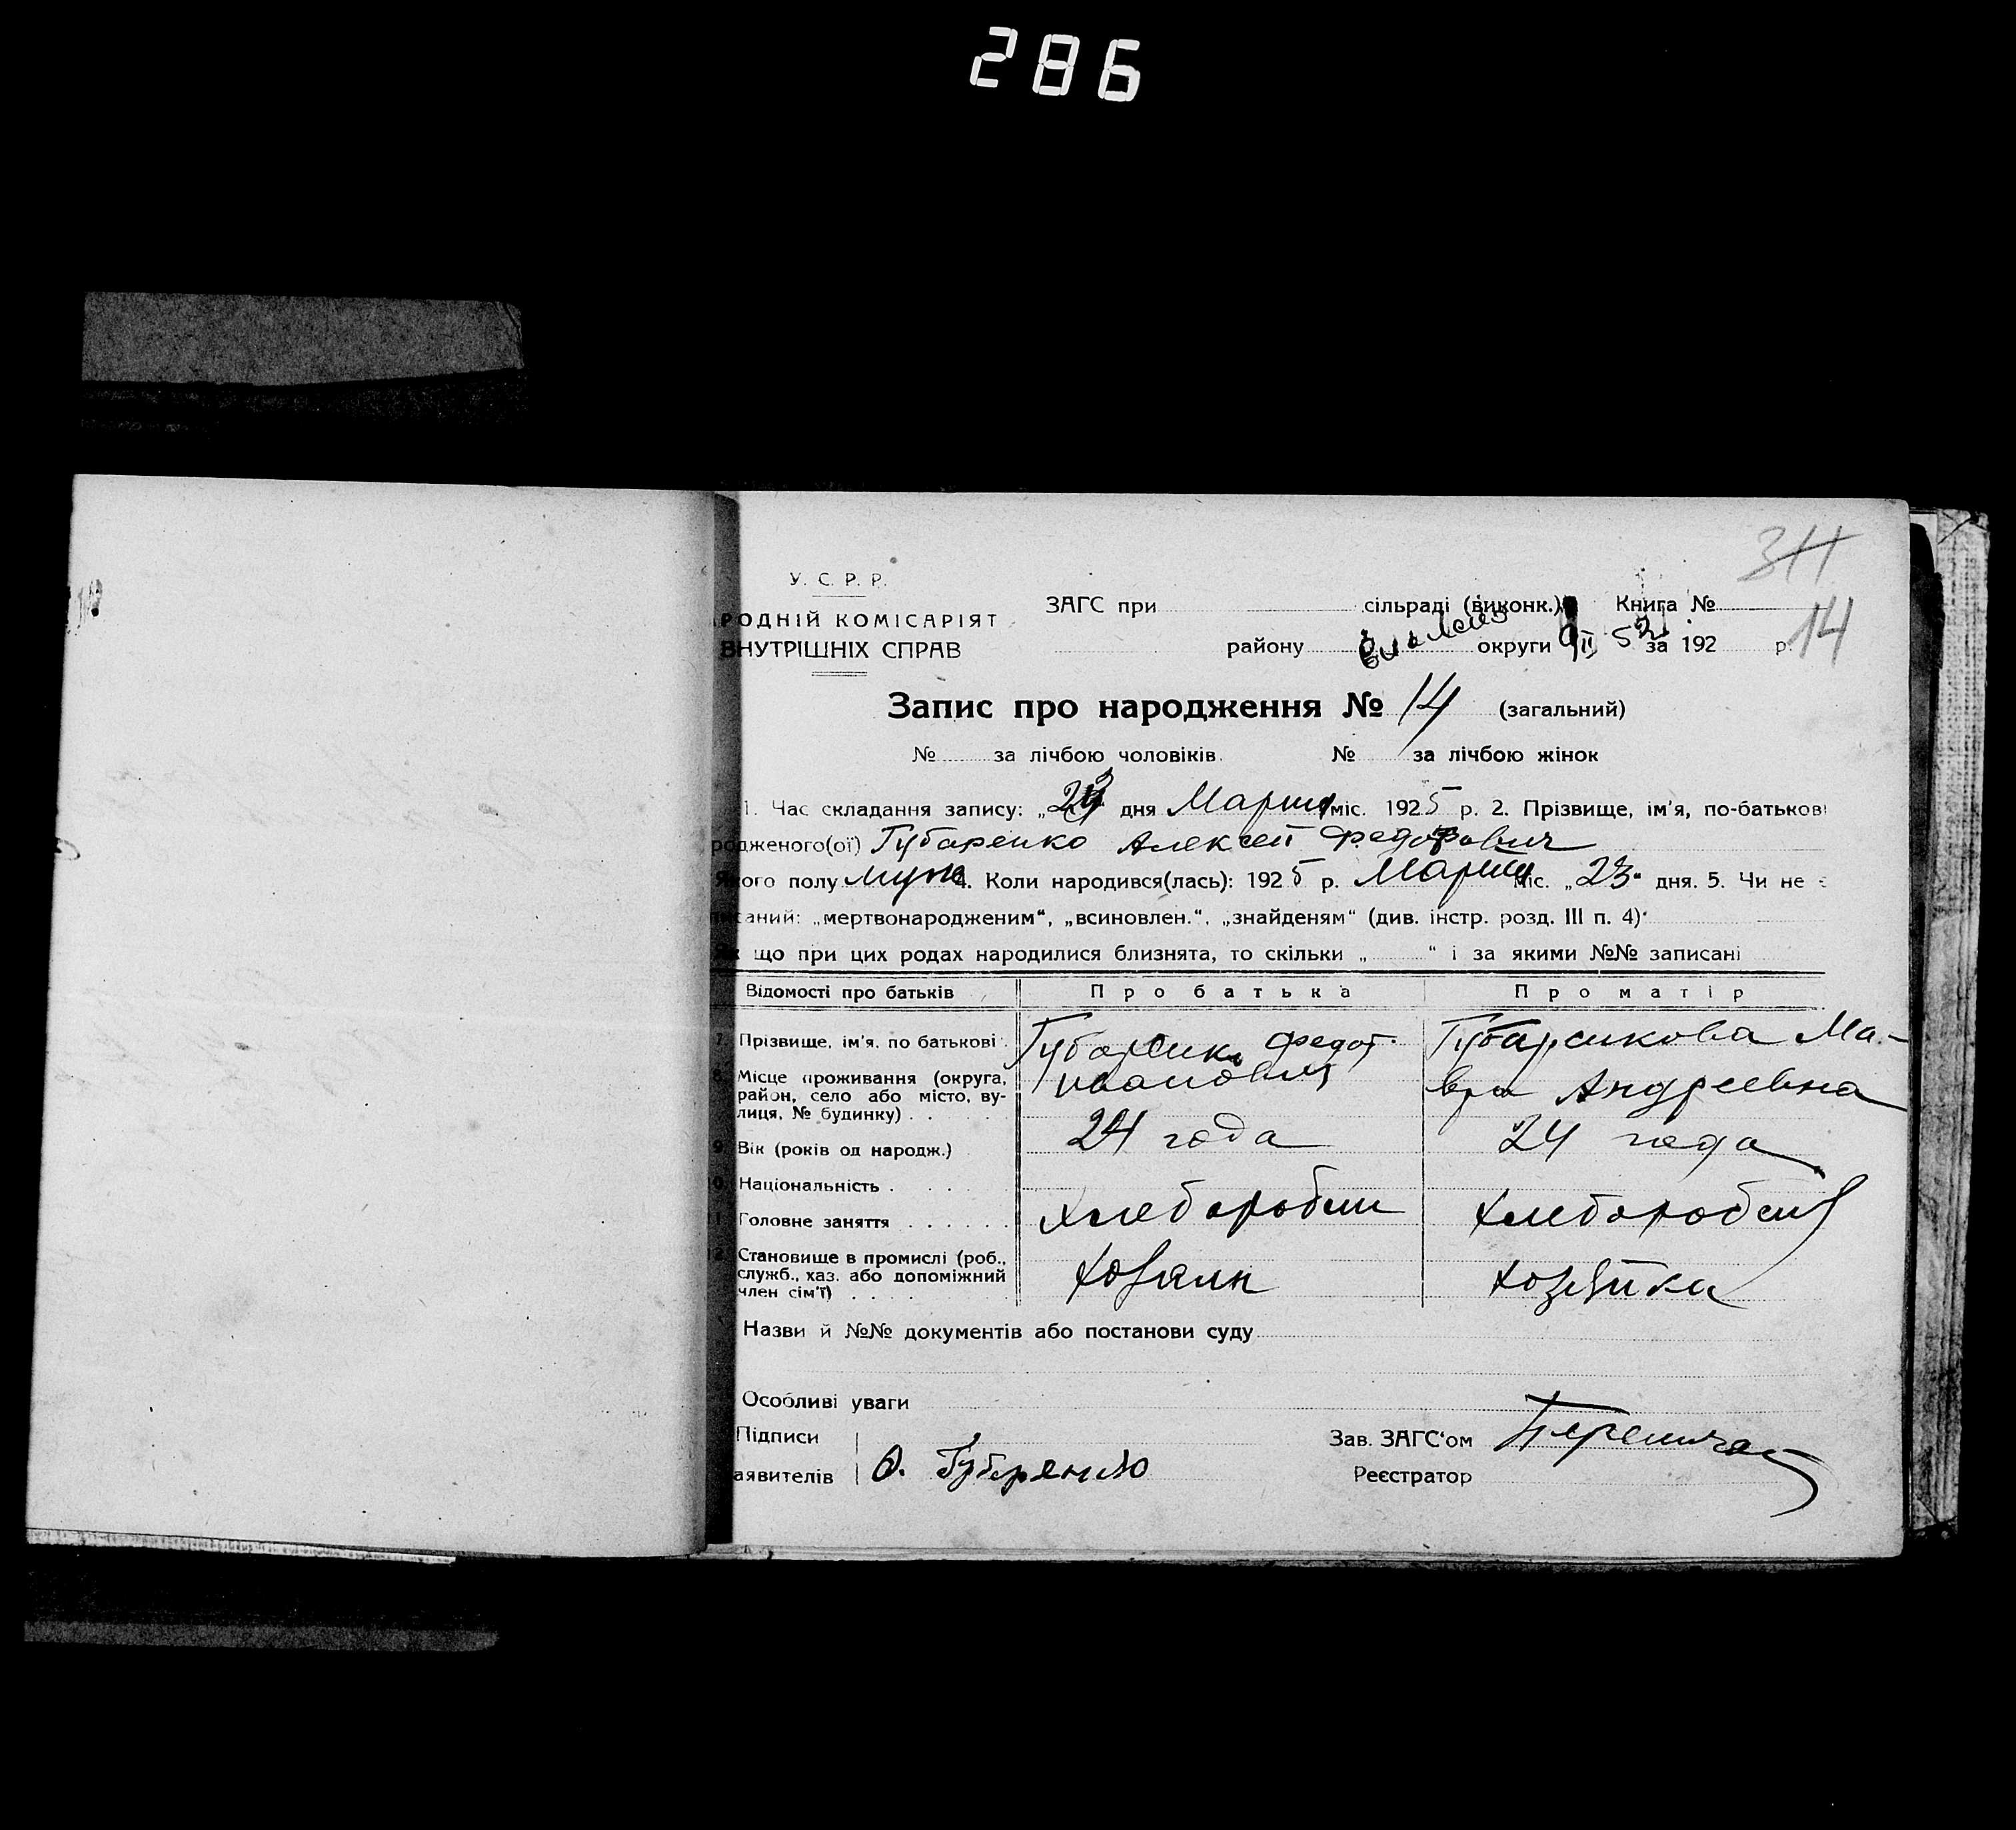 286
311
У. С. Р. Р.
РОДНІЙ КОМІСАРІЯТ
ВНУТРІШНІХ СПРАВ
ЗАГС при сільраді (виконк.) Книга №
району округи за 192 р. 14
Запис про народження № 14 (загальний)
№ за лічбою чоловіків. № за лічбою жінок
1. Час складання запису: „23 дня Марта міс. 1925 р. 2. Прізвище, ім'я, по-батькові
родженого(ої) Губаренко Алексей Федотович
якого полу муж 4. Коли народився(лась): 1925 р. Марта міс. „23“ дня. 5. Чи не є
писаний: „мертвонародженим“, „всиновлен.“, „знайденям“ (див. інстр. розд. III п. 4)
що при цих родах народилися близнята, то скільки „ “ і за якими №№ записані
Відомості про батьків Про батька Про матір
7. Прізвище, ім'я, по батькові Губаренко Федот Иванович Губаренкова Ма-
вра Андреевна
8. Місце проживання (округа,
район, село або місто, ву-
лиця, № будинку)
9. Вік (років од народж.) 24 года 24 года
Національність
Головне заняття хлебаробин хлебаробин
Становище в промислі (роб.,
служб., хаз. або допоміжний
член сім'ї) хозяин хозяйка
Назви й №№ документів або постанови суду
Особливі уваги
Підписи
аявителів Ф. Губаренко
Зав. ЗАГС'ом
Реєстратор